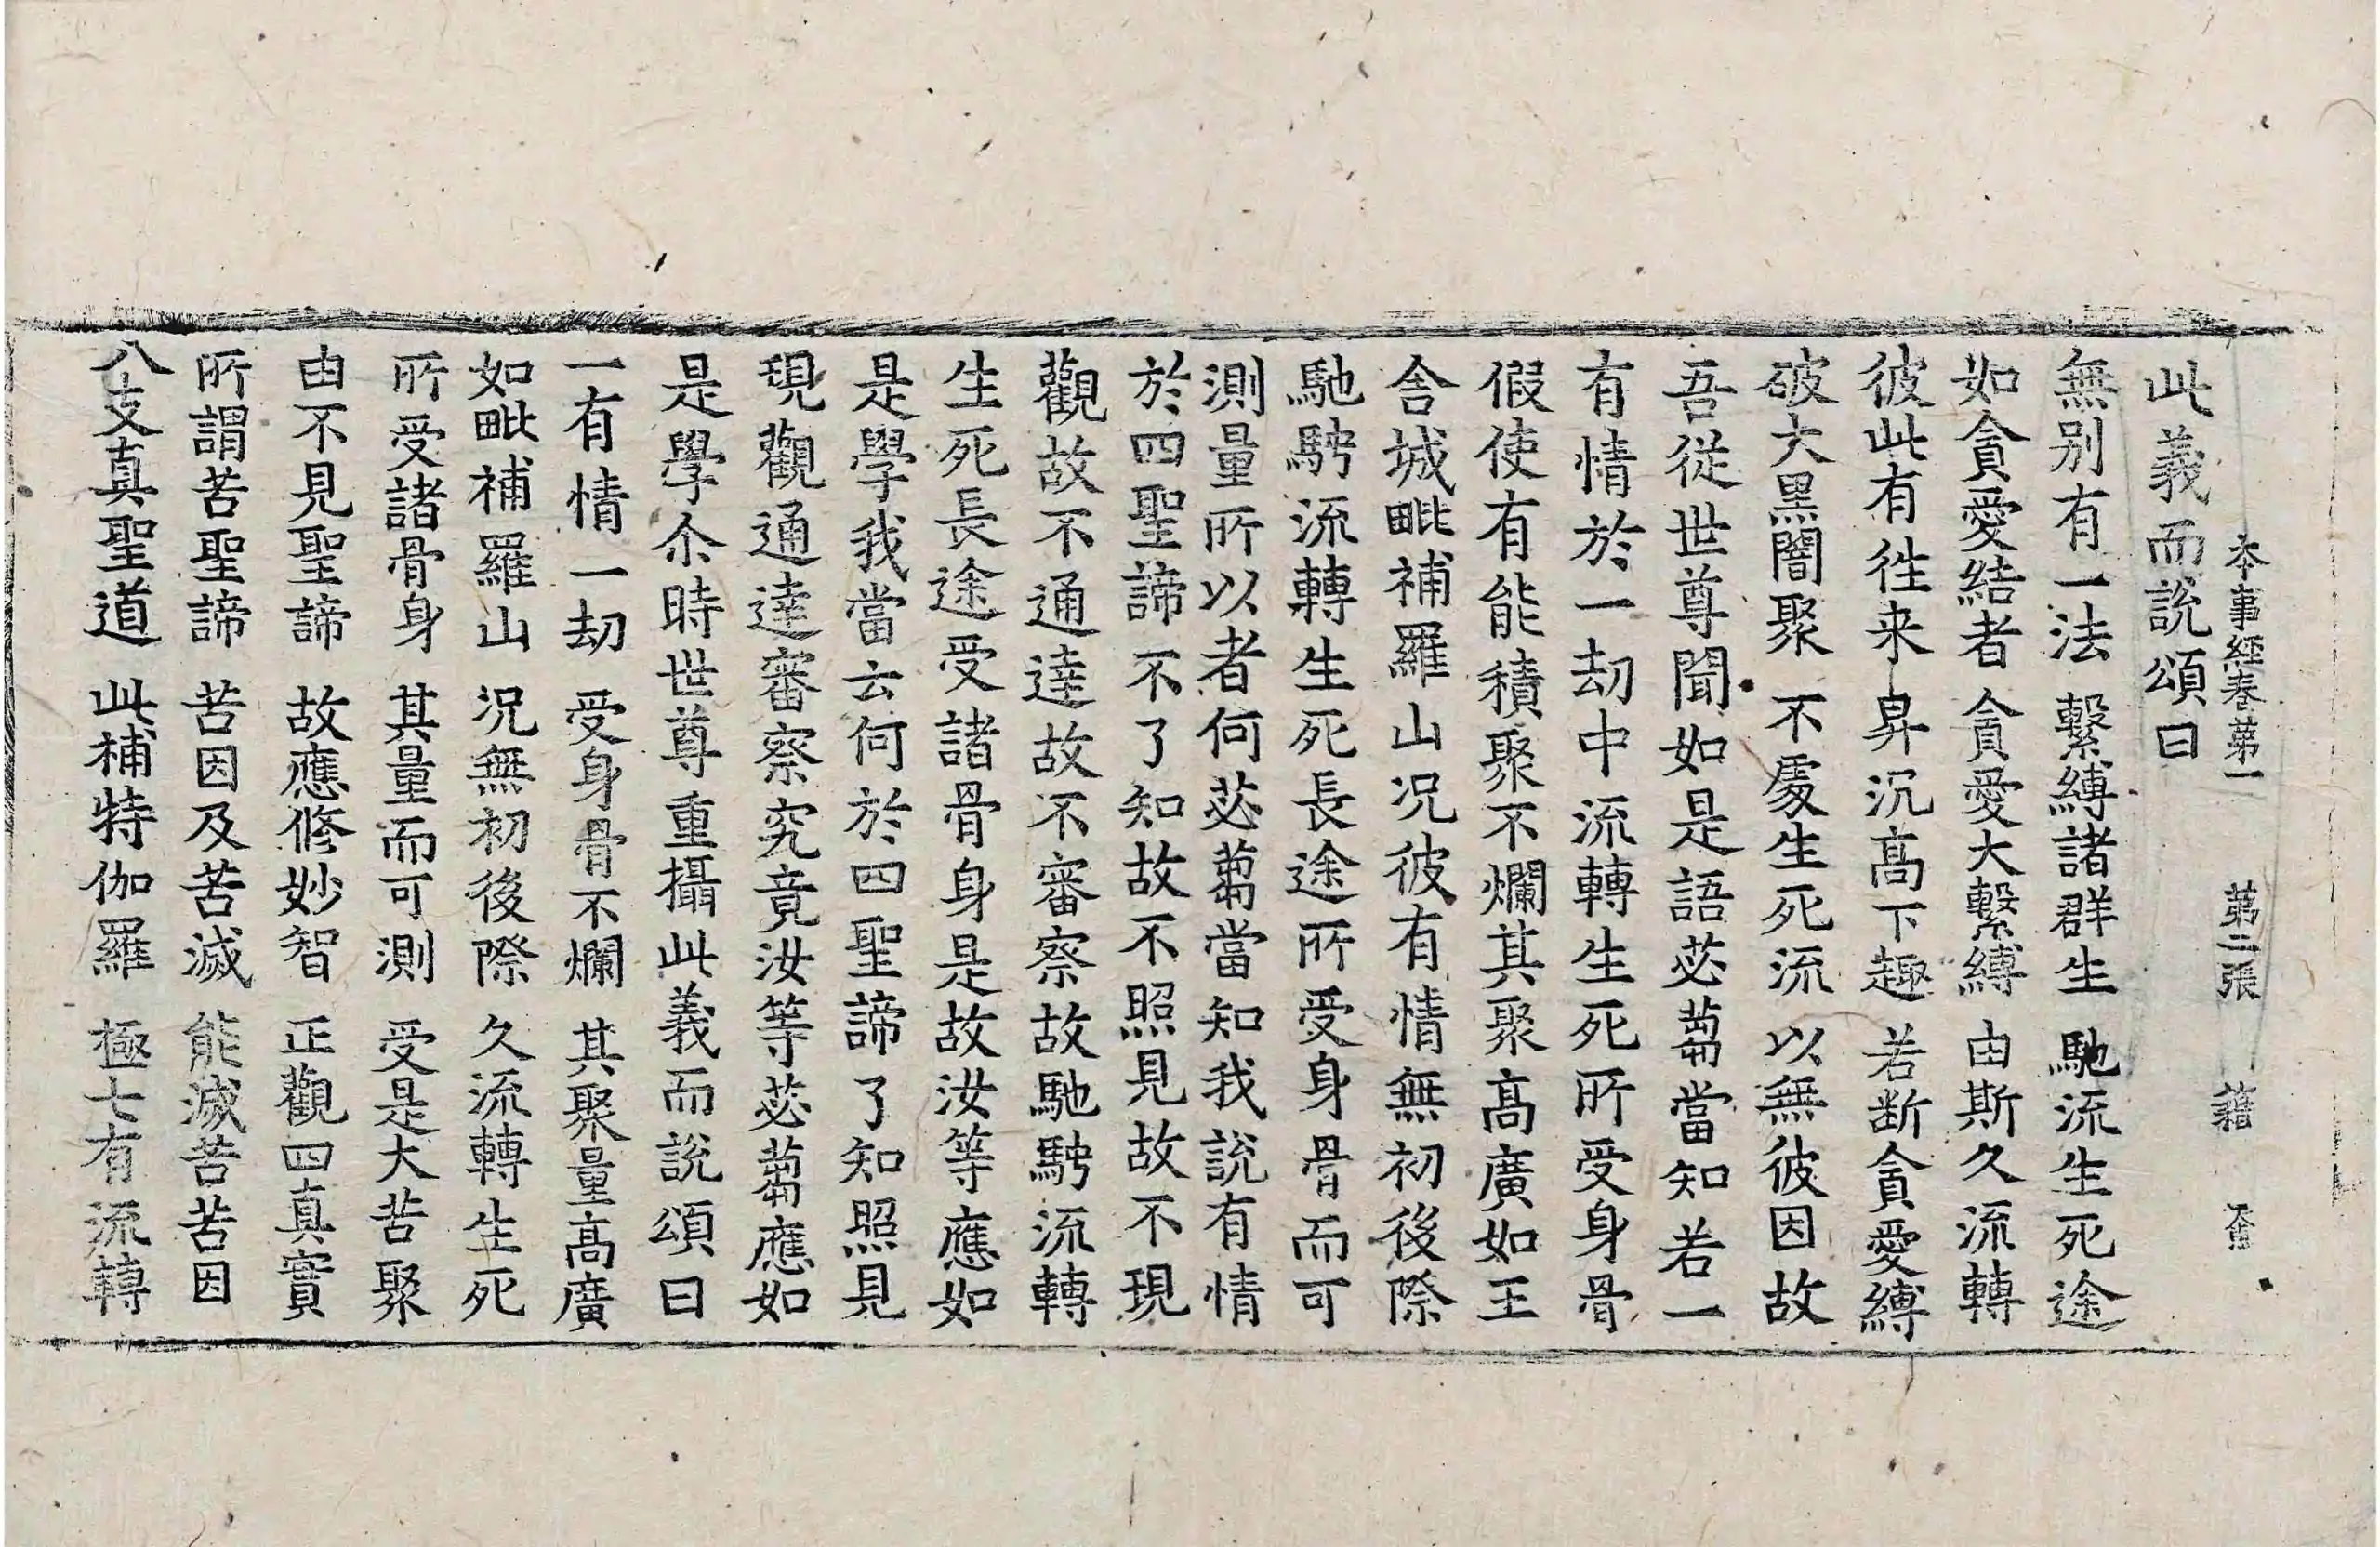 本事經卷第一 第二張 籍
此義而說頌曰
無别有一法 繫縛諸群生 馳流生死途
如貪愛結者 貪愛大繫縛 由斯久流轉
彼此有徃来 昇沉髙下趣 若断貪愛縛
破大黑闇聚 不處生死流 以無彼因故
吾從世尊聞如是語苾蒭當知若一
有情於一劫中流轉生死所受身骨
假使有能積聚不爛其聚髙廣如王
舍城毗補羅山况彼有情無初後際
馳騁流轉生死長途所受身骨而可
測量所以者何苾蒭當知我說有情
於四聖諦不了知故不照見故不現
觀故不通達故不審察故馳騁流轉
生死長途受諸骨身是故汝等應如
是學我當云何於四聖諦了知照見
現觀通達審察究竟汝等苾蒭應如
是學尒時世尊重攝此義而說頌曰
一有情一劫 受身骨不爛 其聚量髙廣
如毗補羅山 況無初後際 久流轉生死
所受諸骨身 其量而可測 受是大苦聚
由不見聖諦 故應修妙智 正觀四真實
所謂苦聖諦 苦因及苦滅 能滅苦苦因
八支真聖道 此補特伽羅 極七有流轉